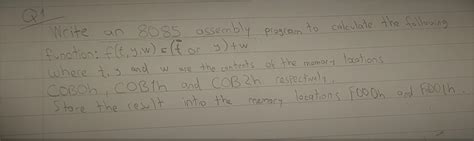 Q1
Write an 8085 assembly program to calculate the following
function: f(t,y,w) = (t̄ or y)+w
Where t, y and w are the contents of the memory locations
C0B0h, C0B1h and C0B2h respectively.
Store the result into the memory locations F000h and F001h.